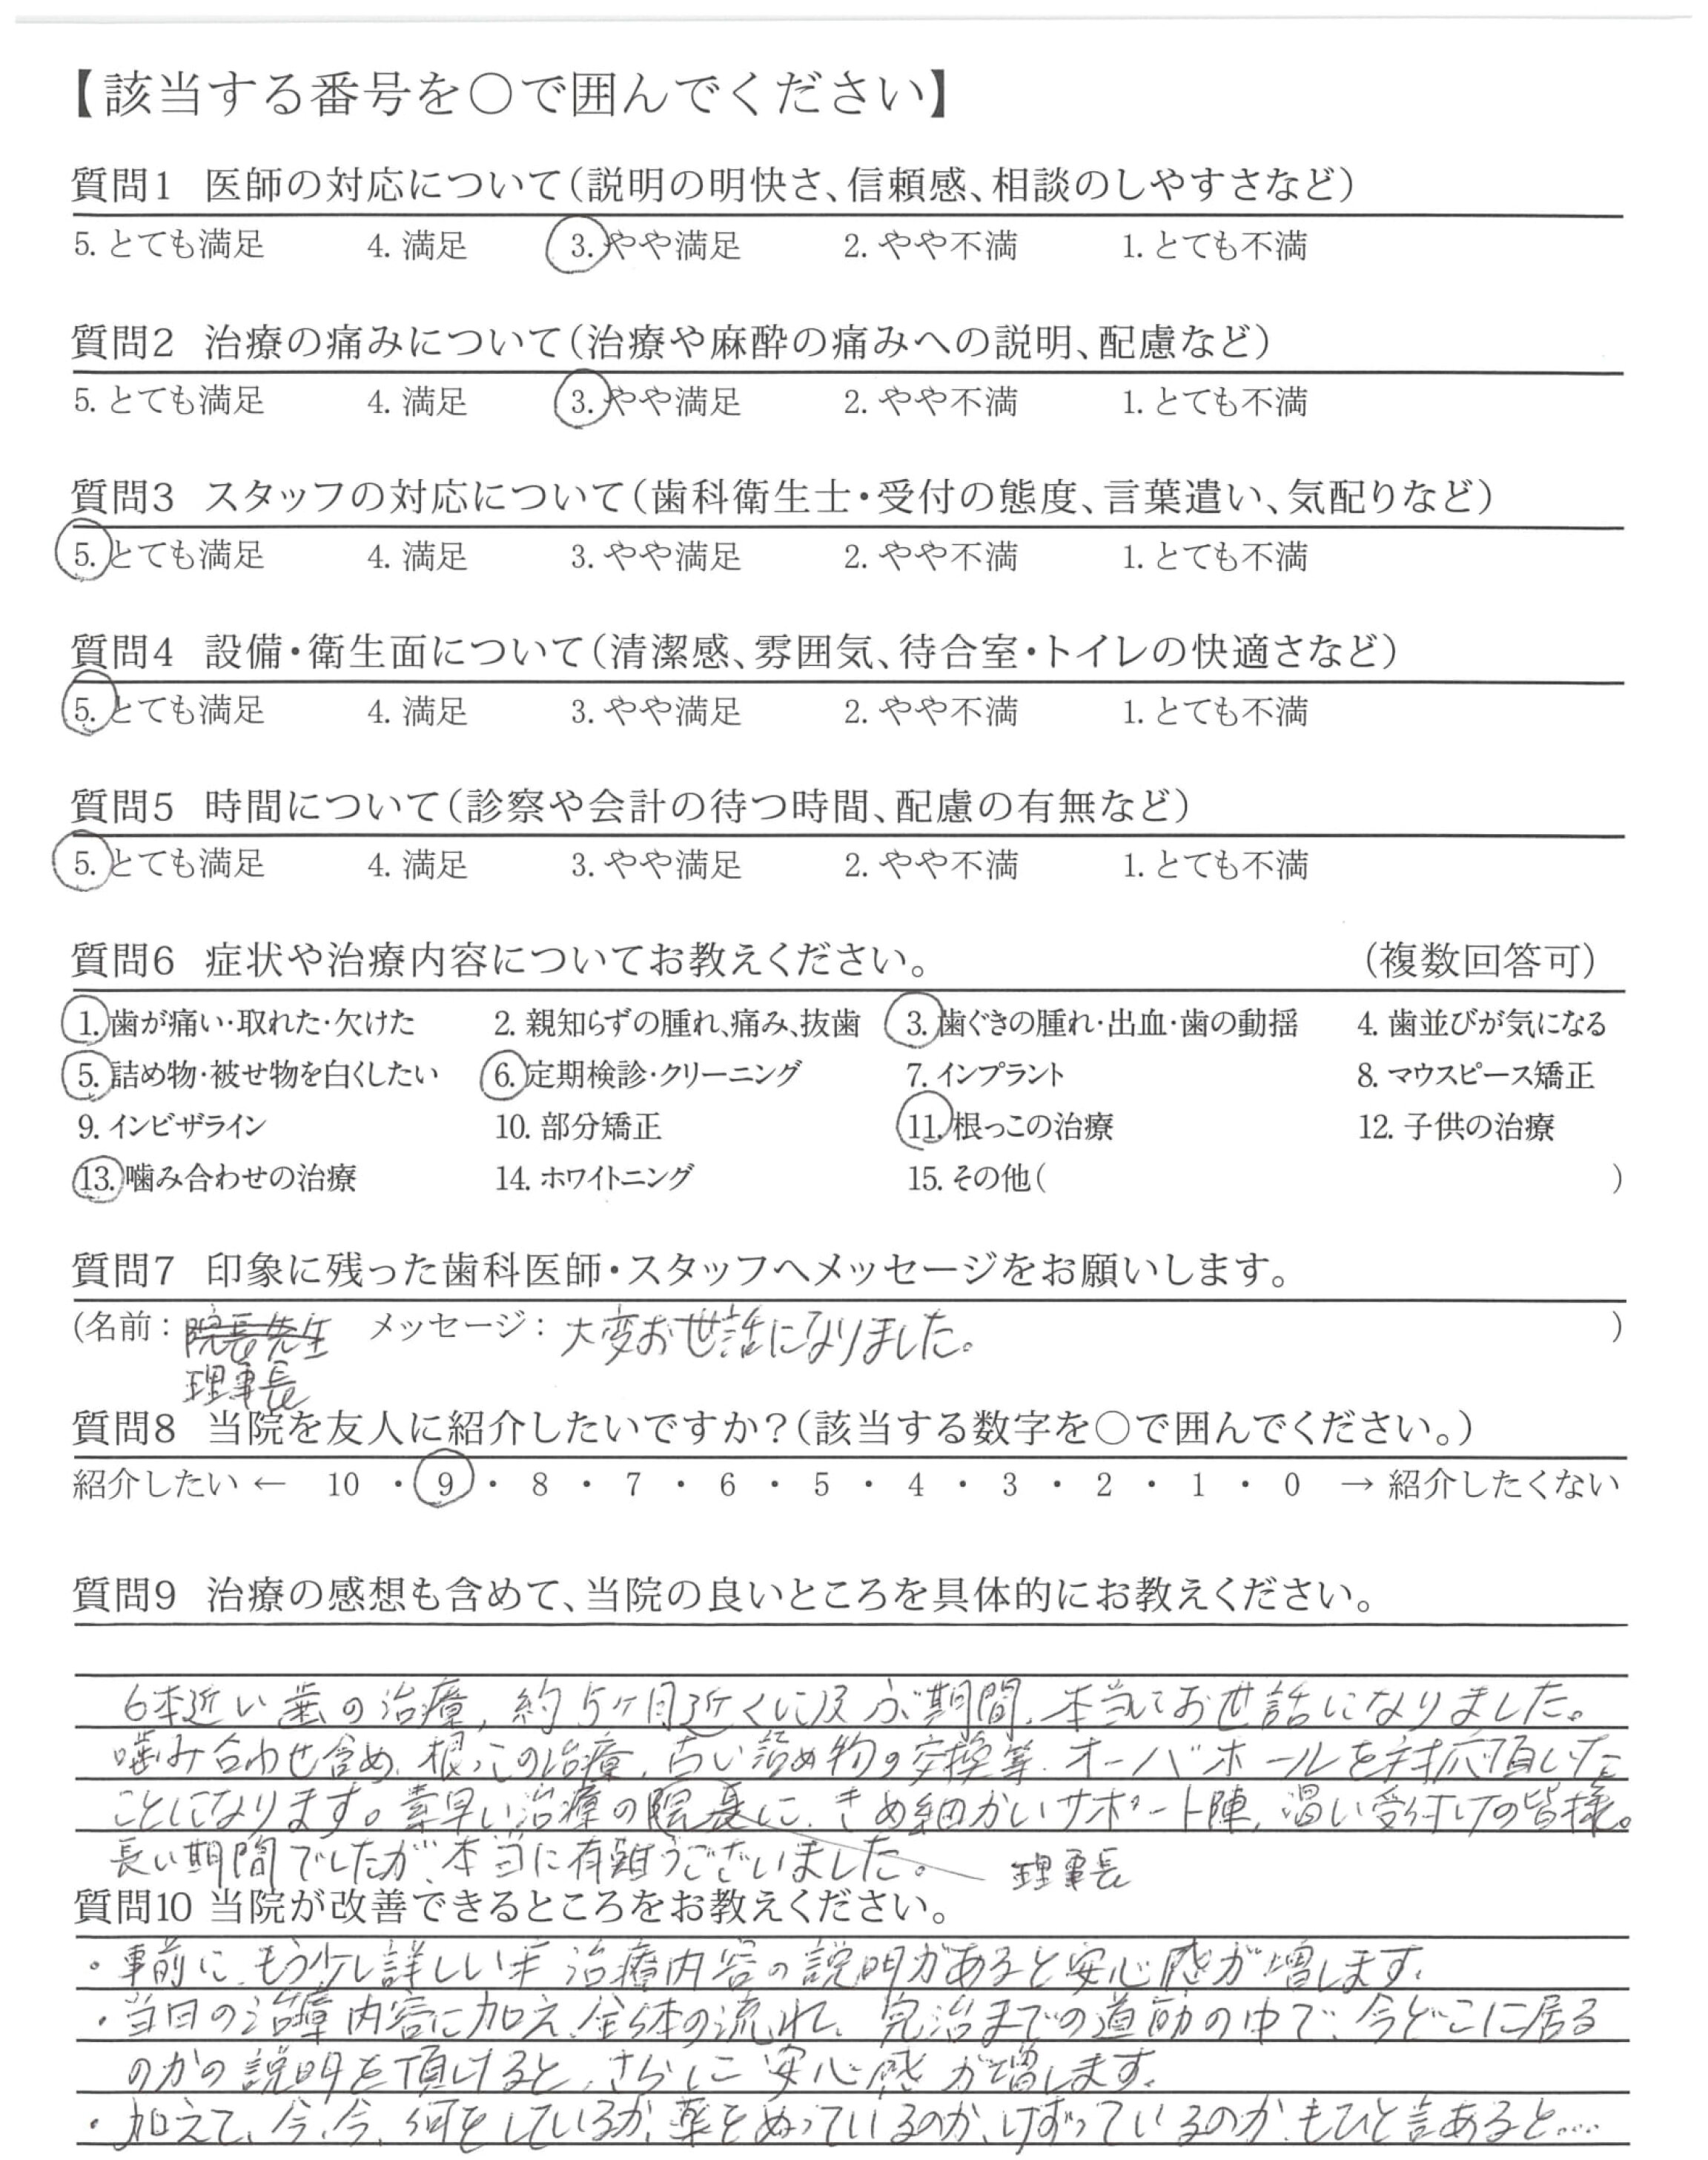 【該当する番号を○で囲んでください】
質問1 医師の対応について(説明の明快さ、信頼感、相談のしやすさなど)
5. とても満足 4. 満足 3. やや満足 2. やや不満 1. とても不満
質問2 治療の痛みについて(治療や麻酔の痛みへの説明、配慮など)
5. とても満足 4. 満足 3. やや満足 2. やや不満 1. とても不満
質問3 スタッフの対応について(歯科衛生士・受付の態度、言葉遣い、気配りなど)
5. とても満足 4. 満足 3. やや満足 2. やや不満 1. とても不満
質問4 設備・衛生面について(清潔感、雰囲気、待合室・トイレの快適さなど)
5. とても満足 4. 満足 3. やや満足 2. やや不満 1. とても不満
質問5 時間について(診察や会計の待つ時間、配慮の有無など)
5. とても満足 4. 満足 3. やや満足 2. やや不満 1. とても不満
質問6 症状や治療内容についてお教えください。 (複数回答可)
1. 歯が痛い・取れた・欠けた 2. 親知らずの腫れ、痛み、抜歯 3. 歯ぐきの腫れ・出血・歯の動揺 4. 歯並びが気になる
5. 詰め物・被せ物を白くしたい 6. 定期検診・クリーニング 7. インプラント 8. マウスピース矯正
9. インビザライン 10. 部分矯正 11. 根っこの治療 12. 子供の治療
13. 噛み合わせの治療 14. ホワイトニング 15. その他( )
質問7 印象に残った歯科医師・スタッフへメッセージをお願いします。
(名前: 院長先生 メッセージ: 大変お世話になりました。 )
理事長
質問8 当院を友人に紹介したいですか?(該当する数字を○で囲んでください。)
紹介したい ← 10 ・ 9 ・ 8 ・ 7 ・ 6 ・ 5 ・ 4 ・ 3 ・ 2 ・ 1 ・ 0 → 紹介したくない
質問9 治療の感想も含めて、当院の良いところを具体的にお教えください。
6本近い歯の治療、約5ヶ月近くに及ぶ期間、本当にお世話になりました。
噛み合わせ含め、根っこの治療、古い詰め物の交換等、オーバホールを対応頂いた
ことになります。素早い治療の院長に、きめ細かいサポート陣、温い受付けの皆様。
長い期間でしたが、本当に有難うございました。 理事長
質問10 当院が改善できるところをお教えください。
・事前に、もう少し詳しい 治療内容の説明があると安心感が増します。
・当日の治療内容に加え、全体の流れ、完治までの道筋の中で、今どこに居る
のかの説明を頂けると、さらに安心感が増します。
・加えて、今、今、何をしているか、薬をぬっているのか、けずっているのか、もひと言あると....